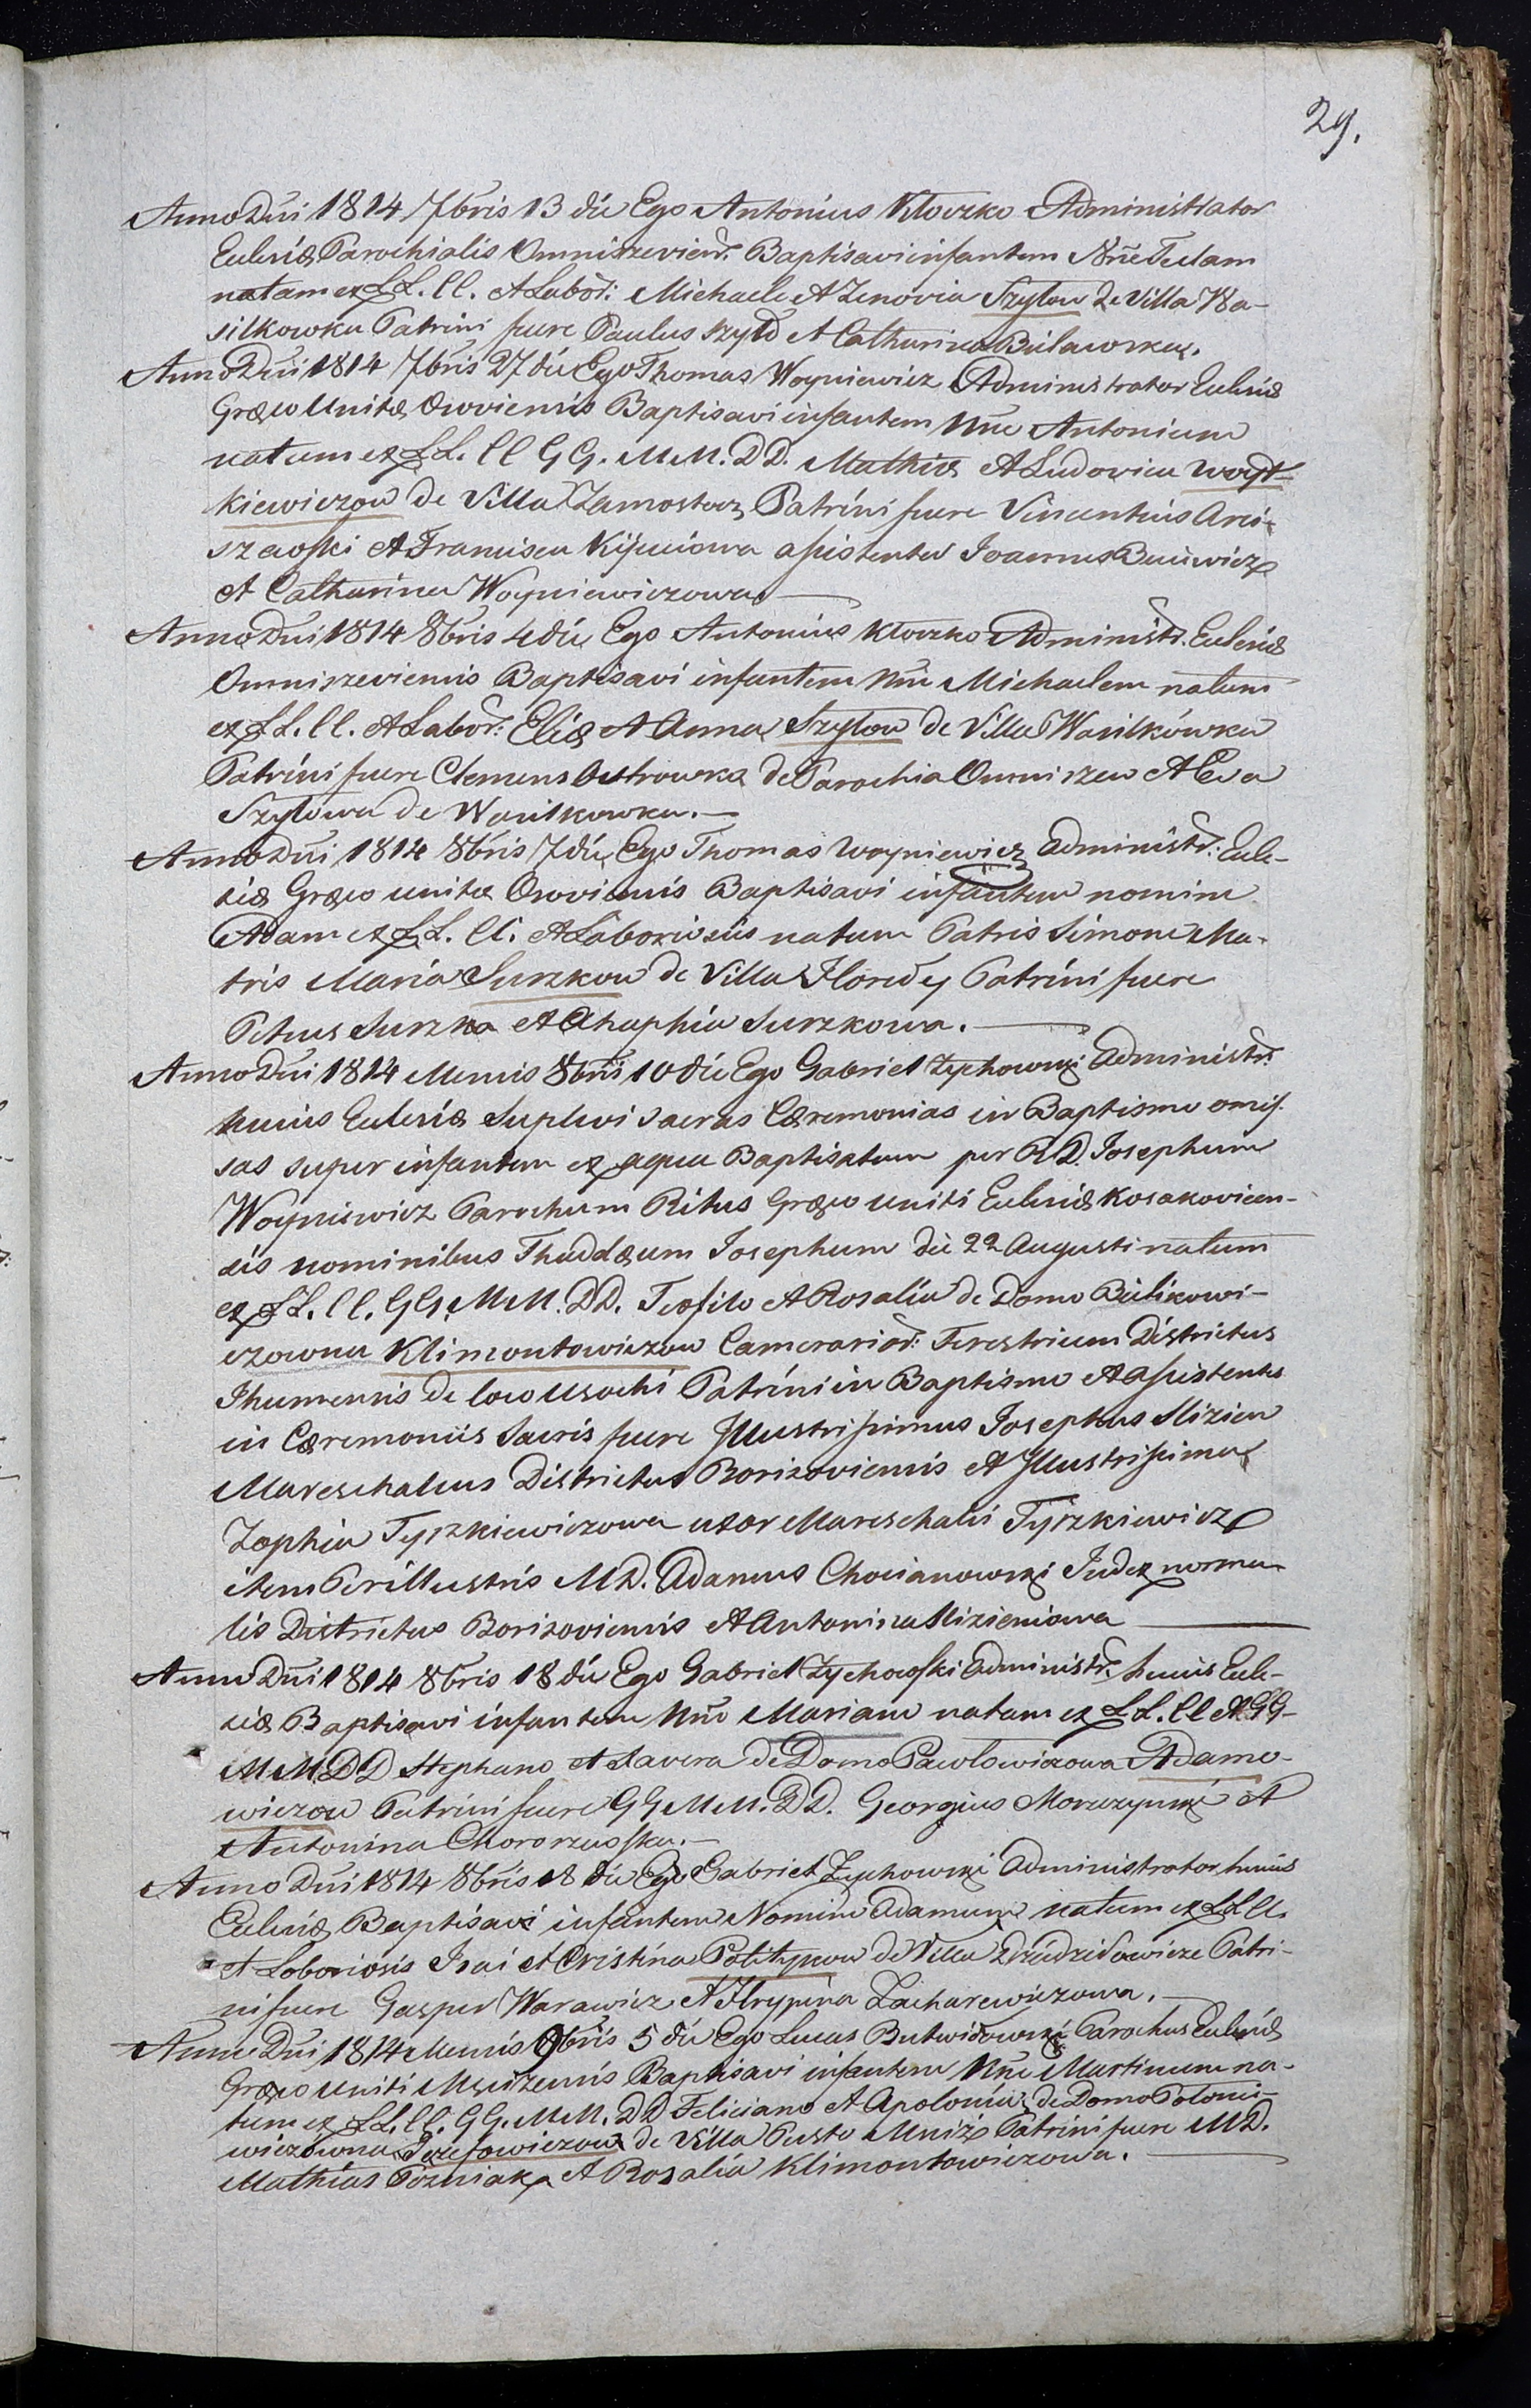 29.
Anno Dni 1814 7bris 13 die Ego Antonius Kłoczko Administrator
Ecclesiæ Parochialis Omniszeviens. Baptisavi infantem Nne Teclam
natam ex LL. CC. et Labor: Michaele et Zenovia Szyłow de Villa Wa-
silkowka Patrini fuere Paulus Szyło et Catharina Bielawska.
Anno Dni 1814 7bris 27 die Ego Thomas Woyniewicz Administrator Ecclesiæ
Græco Unitæ Osoviensis Baptisavi infantem Nne Antonium
natum ex LL. CC GG. MM. DD. Mathia et Ludovica Woyt-
kiewiczow de Villa Zamostocz Patrini fuere Vincentius Arci-
szewski et Francisca assistentes Joannes
et Catharina Woyniewiczowa
Anno Dni 1814 8bris 4 die Ego Antonius Kłoczko Administr. Ecclesiæ
Omniszeviensis Baptisavi infantem Nne Michaelem natum
ex LL. CC. et Labor: Elia et Anna Szyłow de Villa Wasilkówka
Patrini fuere Clemens Ostrowka de Parochia Omniszew et Eva
Szyłowa de Wasilkowka.
Anno Dni 1814 8bris 7 die Ego Thomas Woyniewicz Administr: Eccle-
siæ Græco unitæ Osoviensis Baptisavi infantem nomine
Adam ex LL. CC. et Laboriosis natum Patris Simone Ma-
tris Maria Surzkow de Villa Horodey Patrini fuere
Petrus Surzko et Ahaphia Surzkowa.
Anno Dni 1814 Mensis 8bris 10 die Ego Gabriel Zychowski Administr.
huius Ecclesiæ Suplevi sacras Cæremonias in Baptismo omis-
sas super infantem ex aqua Baptisatum per R D. Josephum
Woyniewicz Parochum Ritus Græco uniti Ecclesiæ Kosakovicen-
sis nominibus Thaddæum Josephum die 22 Augusti natum
ex LL. CC. GG. MM. DD. Teofilo et Rosalia de Domo Bulikowi-
czowna Klimontowiczow Camerarior: Terestrium Districtus
Ihumensis de loco Usochi Patrini in Baptismo et assistentes
in Cæremoniis Sacris fuere Illustrissimus Josephus Slizien
Mareschalcus Districtus Borisoviensis et Illustrissima
Zophia Tyszkiewiczowa uxor Mareschalci Tyszkiewicz
item Perillustris MD. Adamus Chocianowski Judex norma-
lis Districtus Borisoviensis et Antonina Slizieniowa
Anno Dni 1814 8bris 18 die Ego Gabriel Zychowski Administr. huius Eccle-
siæ Baptisavi infantem Nne Mariam natam ex LL. CC et GG-
MM DD Stephano et Xavera de Domo Pawłowiczowa Adamo-
wiczow Patrini fuere GG MM. DD. Georgius Moraczynski et
Antonina Chororzewska.
Anno Dni 1814 8bris 18 die Ego Gabriel Zychowski Administrator huius
Ecclesiæ Baptisavi infantem Nomine Adamum natum ex LL CC.
et Laboriosis Isai et Cristina Politykow de Villa Dziedziłowicze Patri-
ni fuere Gasper Warawicz et Hrypina Zacharewiczowa.
Anno Dni 1814 Mensis 9bris 5 die Ego Lucas Butwidowski Parochus Ecclesiæ
Græco uniti Mnizensis Baptisavi infantem Nne Martinum na-
tum ex LL. CC. GG. MM. DD Feliciano et Apolonia de Domo
wiczówna Jozefowiczow de Villa Pusto Mniże Patrini fuere MD.
Mathias Pozniak et Rosalia Klimontowiczowa.